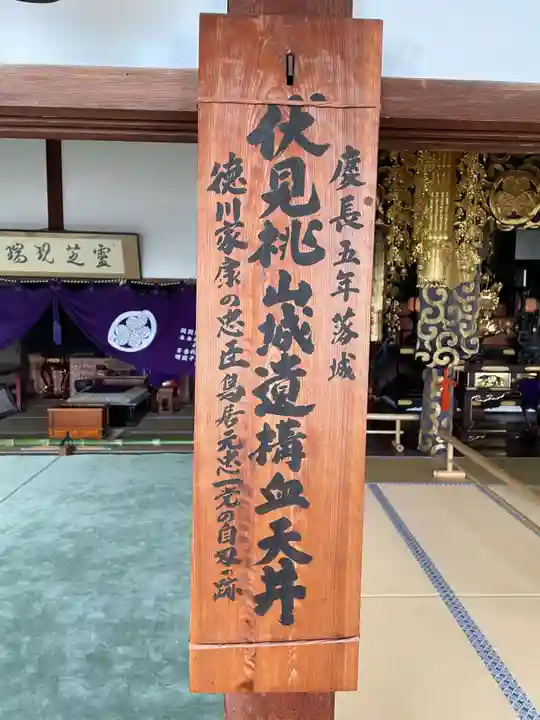 慶長五年落城
伏見桃山城遺構血天井
徳川家康の忠臣鳥居元忠一党の自刃の跡
靈芝現瑞